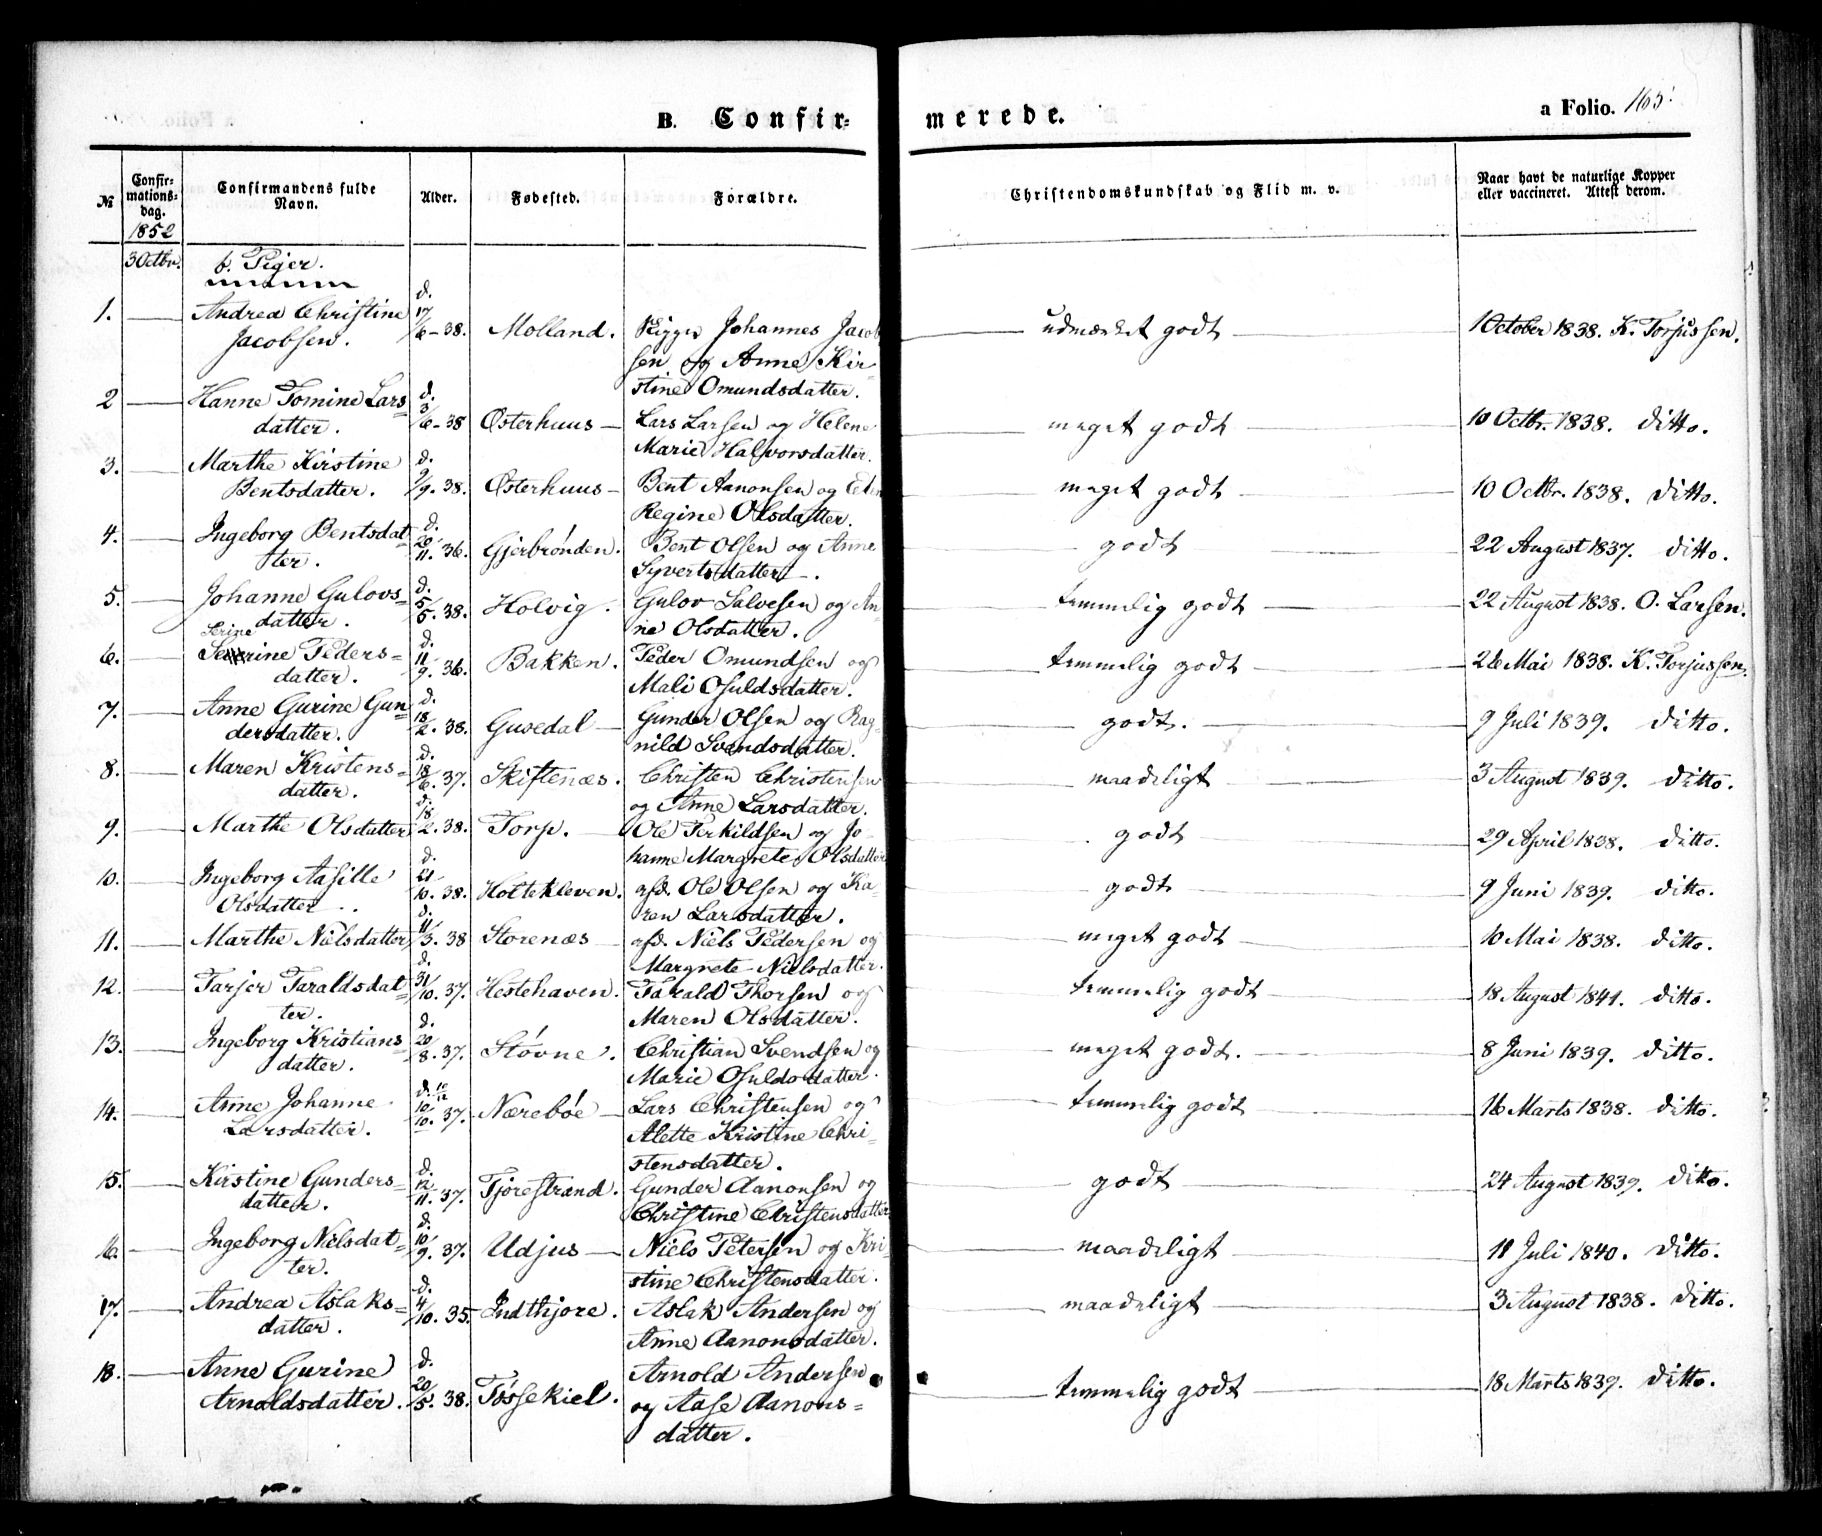 B. Confir-
merede.
a Folio. 165.
№
Confir-
mations-
dag.
1852
Confirmandens fulde
Navn.
Alder.
Fødested.
Forældre.
Christendomskundskab og Flid m. v.
Naar havt de naturlige Kopper
eller vaccineret. Attest derom.
3 Octbr. b. Piger.
1. Andrea Christine
Jacobsen.
d. 17/6-38. Molland. Rigger Johannes Jacob
sen og Anne Kir-
stine Omundsdatter.
udmærket godt
1 October 1838. K. Torjussen.
2 Hanne Tomine Lars=
datter.
d. 3/6-38 Østerhuus Lars Larsen og Helene
Marie Halvorsdatter.
meget godt
10 Octbr. 1838. ditto.
3. Marthe Kirstine
Bentsdatter.
d. 9/9. 38. Østerhuus Bent Aanonsen og
Regine Olsdatter.
meget godt
10 Octbr. 1838. ditto.
4. Ingeborg Bentsdat=
ter.
d. 20/11. 36. Gjerbrønden. Bent Olsen og Anne
Syvertsdatter.
godt
22 August 1837. ditto.
5. Johanne Gulovs=
datter.
d. 5/5. 38. Holvig. Gulov Salvesen og An=
ne Olsdatter.
temmelig godt
22 August 1838. O. Larsen.
Serine
6. Severine Peders=
datter.
d. 11/9. 36. Bakken. Peder Omundsen og
Mali Osuldsdatter.
temmelig godt
26 Mai 1838. K. Torjussen.
7. Anne Gurine Gun=
dersdatter.
d. 18/2. 38. Gusedal Gunder Olsen og Rag=
nild Svendsdatter.
godt.
9 Juli 1839. ditto.
8. Maren Kristens=
datter.
d. 18/6. 37. Skiftenæs. Christen Christensen
og Anne Larsdatter.
maadeligt
3 August 1839. ditto.
9. Marthe Olsdatter
d. 18/2. 38. Torp. Ole Terkildsen og Jo-
hanne Margrete Olsdatter
godt
29 April 1838. ditto.
10. Ingeborg Aasille
Olsdatter
d. 21/10. 38. Holtekleven. afd. Ole Olsen og Ka-
ren Larsdatter.
godt
9 Juni 1839. ditto.
11. Marthe Nielsdatter
d. 11/3. 38 Storenæs afd. Niels Pedersen og
Margrete Nielsdatter.
meget godt
10 Mai 1838. ditto.
12. Tarjer Taraldsdat=
ter.
d. 31/10. 37. Hestehaven. Tarald Thorsen og
Maren Olsdatter.
temmelig godt
18 August 1841. ditto.
13. Ingeborg Kristians=
datter.
d. 20/8. 37. Støvne. Christian Svendsen og
Marie Osuldsdatter.
meget godt.
8 Juni 1839. ditto.
14. Anne Johanne
Larsdatter.
d. 10/10. 37. Nærebøe Lars Christensen og
Alette Kristine Chri-
stensdatter.
temmelig godt
16 Marts 1838. ditto.
15. Kirstine Gunders=
datter.
d. 12/11. 37. Fjorestrand. Gunder Aanonsen og
Christine Christensdatter
godt
24 August 1839. ditto.
16. Ingeborg Nielsdat=
ter.
d. 10/9. 37. Udjus Niels Petersen og Kri-
stine Christensdatter.
maadeligt
11 Juli 1840. ditto.
17. Andrea Aslaks=
datter.
d. 4/10. 35. Indthjore. Aslak Andersen og
Anne Aanonsdatter.
maadeligt
3 August 1838. ditto.
18. Anne Gurine
Arnoldsdatter.
d. 20/5. 38. Tøssekiel. Arnold Andersen
og Aase Aanons=
datter.
temmelig godt
18 Marts 1839. ditto.